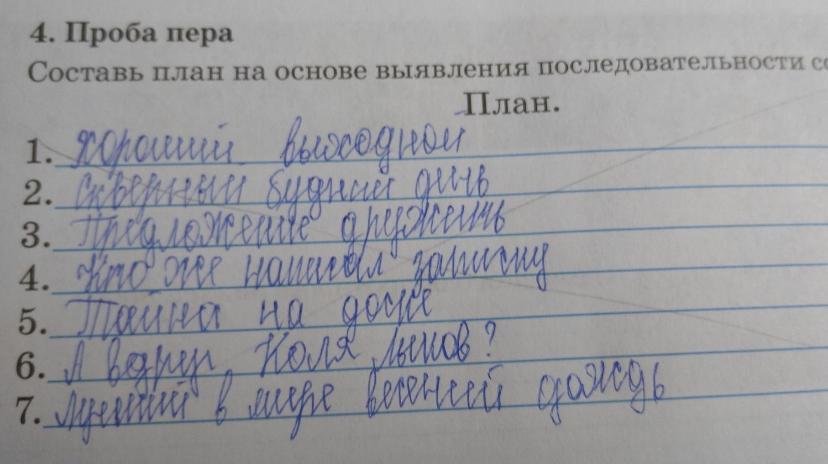 4. Проба пера
Составь план на основе выявления последовательности со
План.
1. Хороший выходной
2. Скверный будний день
3. Предложение дружить
4. Кто же написал записку
5. Тайна на доске
6. А вдруг Коля Лыков?
7. Лучший в мире весений дождь